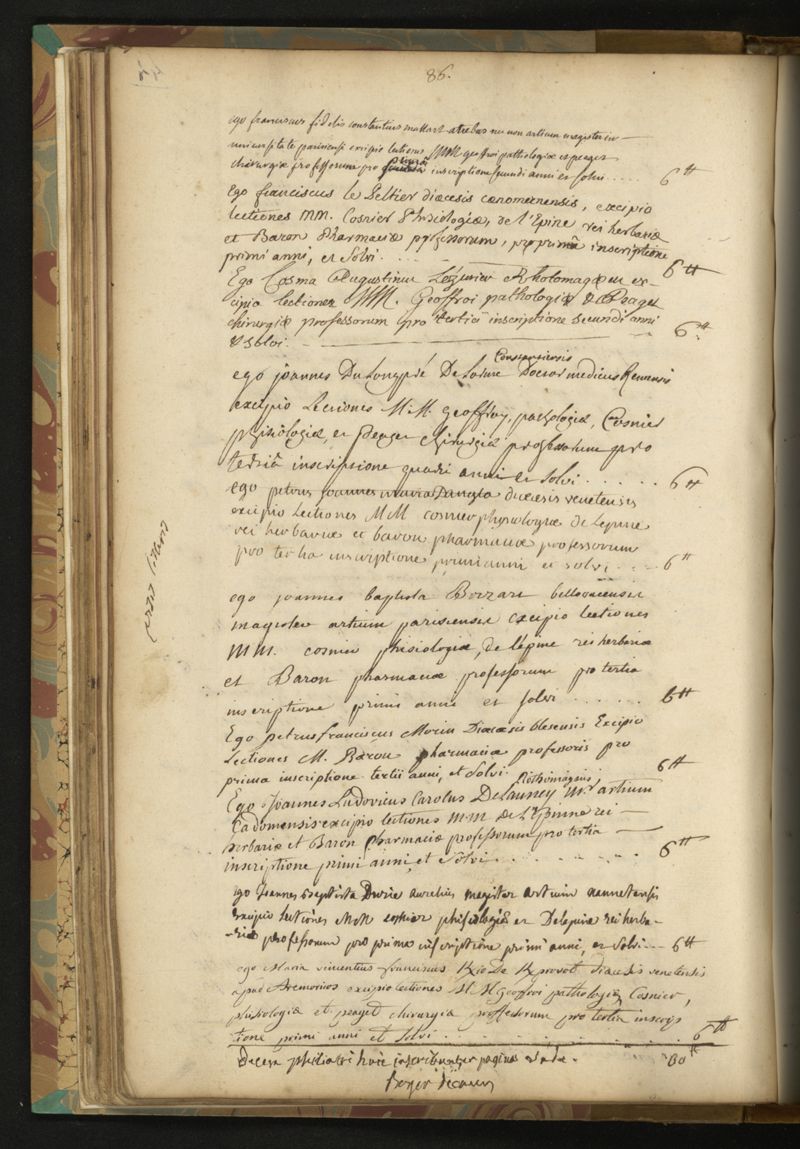 86.
ego franciscus fidelis constantinus mallart atrebas nec non artium magister in
universitate parisiensi excipio lectiones MM geoffroi pathologiæ et peaget
chirurgiæ professorum pro prima inscriptione secundi anni et solvi .... 6tt
Ego franciscus le Peltier diœcesis cenomanensis, excipio
lectiones MM. Cosnier Phisiologiæ, de l'Epine rei herbariæ
et Baron Pharmaciæ professorum, pro prima inscriptione
primi anni, et Solvi. ... 6tt
Ego Cosma Augustinus Rhotomagæus ex-
cipio lectiones MM. Geoffroi pathologiæ & Peaget
chirurgiæ professorum pro tertia inscriptione secundi anni
& solvi. 6tt
Constantiensis
ego joannes Dulongpré Delorme Doctor medicus Remensis
excipio Lectiones M.M. geoffroy, pathologiæ, Cosnier
phisiologiæ, et Peaget chirurgiæ professorum pro
tertiâ inscriptione quarti anni et solvi ...... 6tt
ego petrus joannes maria Danyla diœcesis venetensis
excipio Lectiones MM cosnier physiologiæ de lepine
rei herbariæ et baron pharmaciæ professorum
pro tertia inscriptione primi anni et solvi .... 6tt
ego joannes baptista Bozzart bellovacensis
magister artium parisiensis excipio lectiones
MM. cosnier phisiologiæ, de lépine rei herbariæ
et Baron pharmaciæ professorum pro tertia
inscriptione primi anni et solvi ...... 6tt
Ego petrus franciscus Morin Diœcesis blesensis Excipio
Lectiones M. Baron pharmaciæ professoris pro
prima inscriptione tertii anni, et Solvi. 6tt
Rothomagæus
Ego Joannes Ludovicus Carolus Delauney M. artium
Cadomensis excipio lectiones M.M. de L'Epinne rei
herbariæ et Baron Pharmaciæ professorum pro tertia
inscriptione primi anni et Solvi ........ 6tt
ego Joannes baptista Aurelius magister artium nannetensis
excipio lectiones MM cosnier phisiologiæ et Delepine rei herba-
-riæ professorum pro prima inscriptione primi anni, et solvi --- 6tt
ego Maria vincentius franciscus diœcesis venetensis
apud Aremoricos excipio lectiones M M geoffroi pathologiæ, Cosnier,
phisiologiæ et peaget chirurgiæ professorum pro tertia inscrip
tione primi anni et solvi ............ 6tt
Decem philiatri huic inscribuntur paginæ unde. 60tt
Boyer decanus